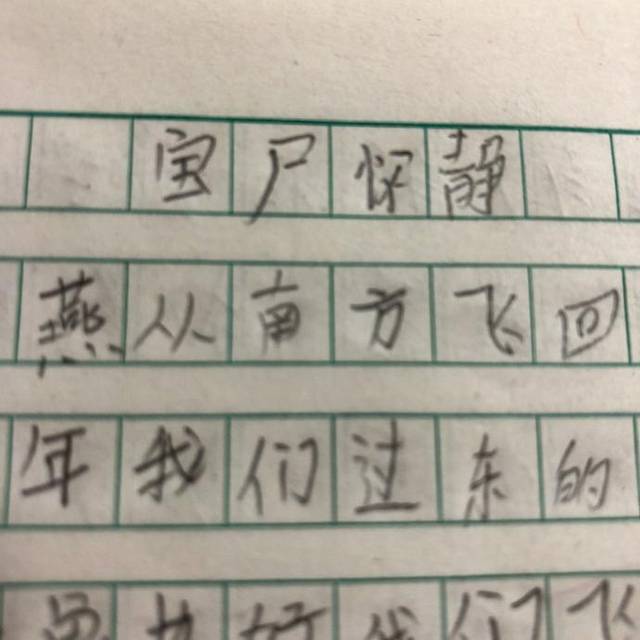 宝尸怀静
燕从南方飞回
年我们过东的